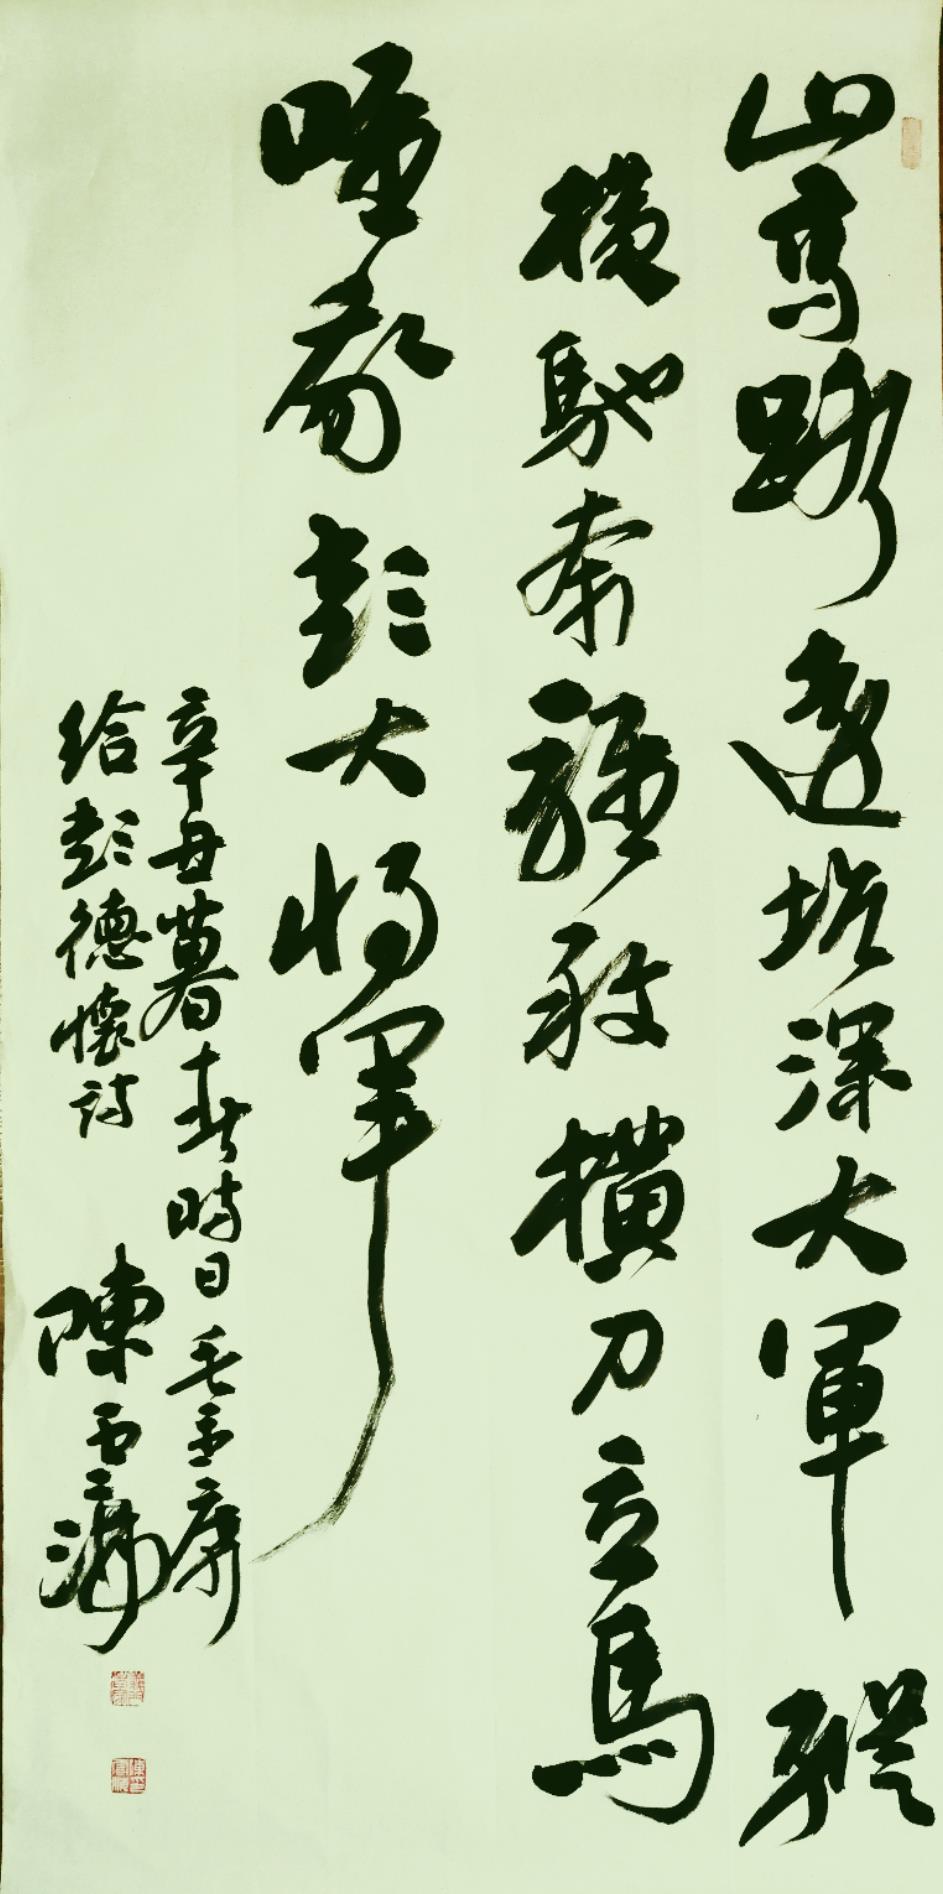 山高路遠坑深大軍縱
橫馳奔驅敢橫刀立馬
唯我彭大將軍
辛丑暮春時日毛主席
給彭德懷詩
陳